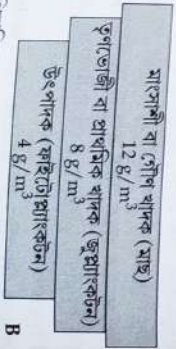 মাংসাশী বা গৌণ খাদক (মাছ)
12 g/m³
তৃণভোজী বা প্রাথমিক খাদক (জুপ্ল্যাংকটন)
8 g/m³
উৎপাদক (ফাইটোপ্ল্যাংকটন)
4 g/m³
B